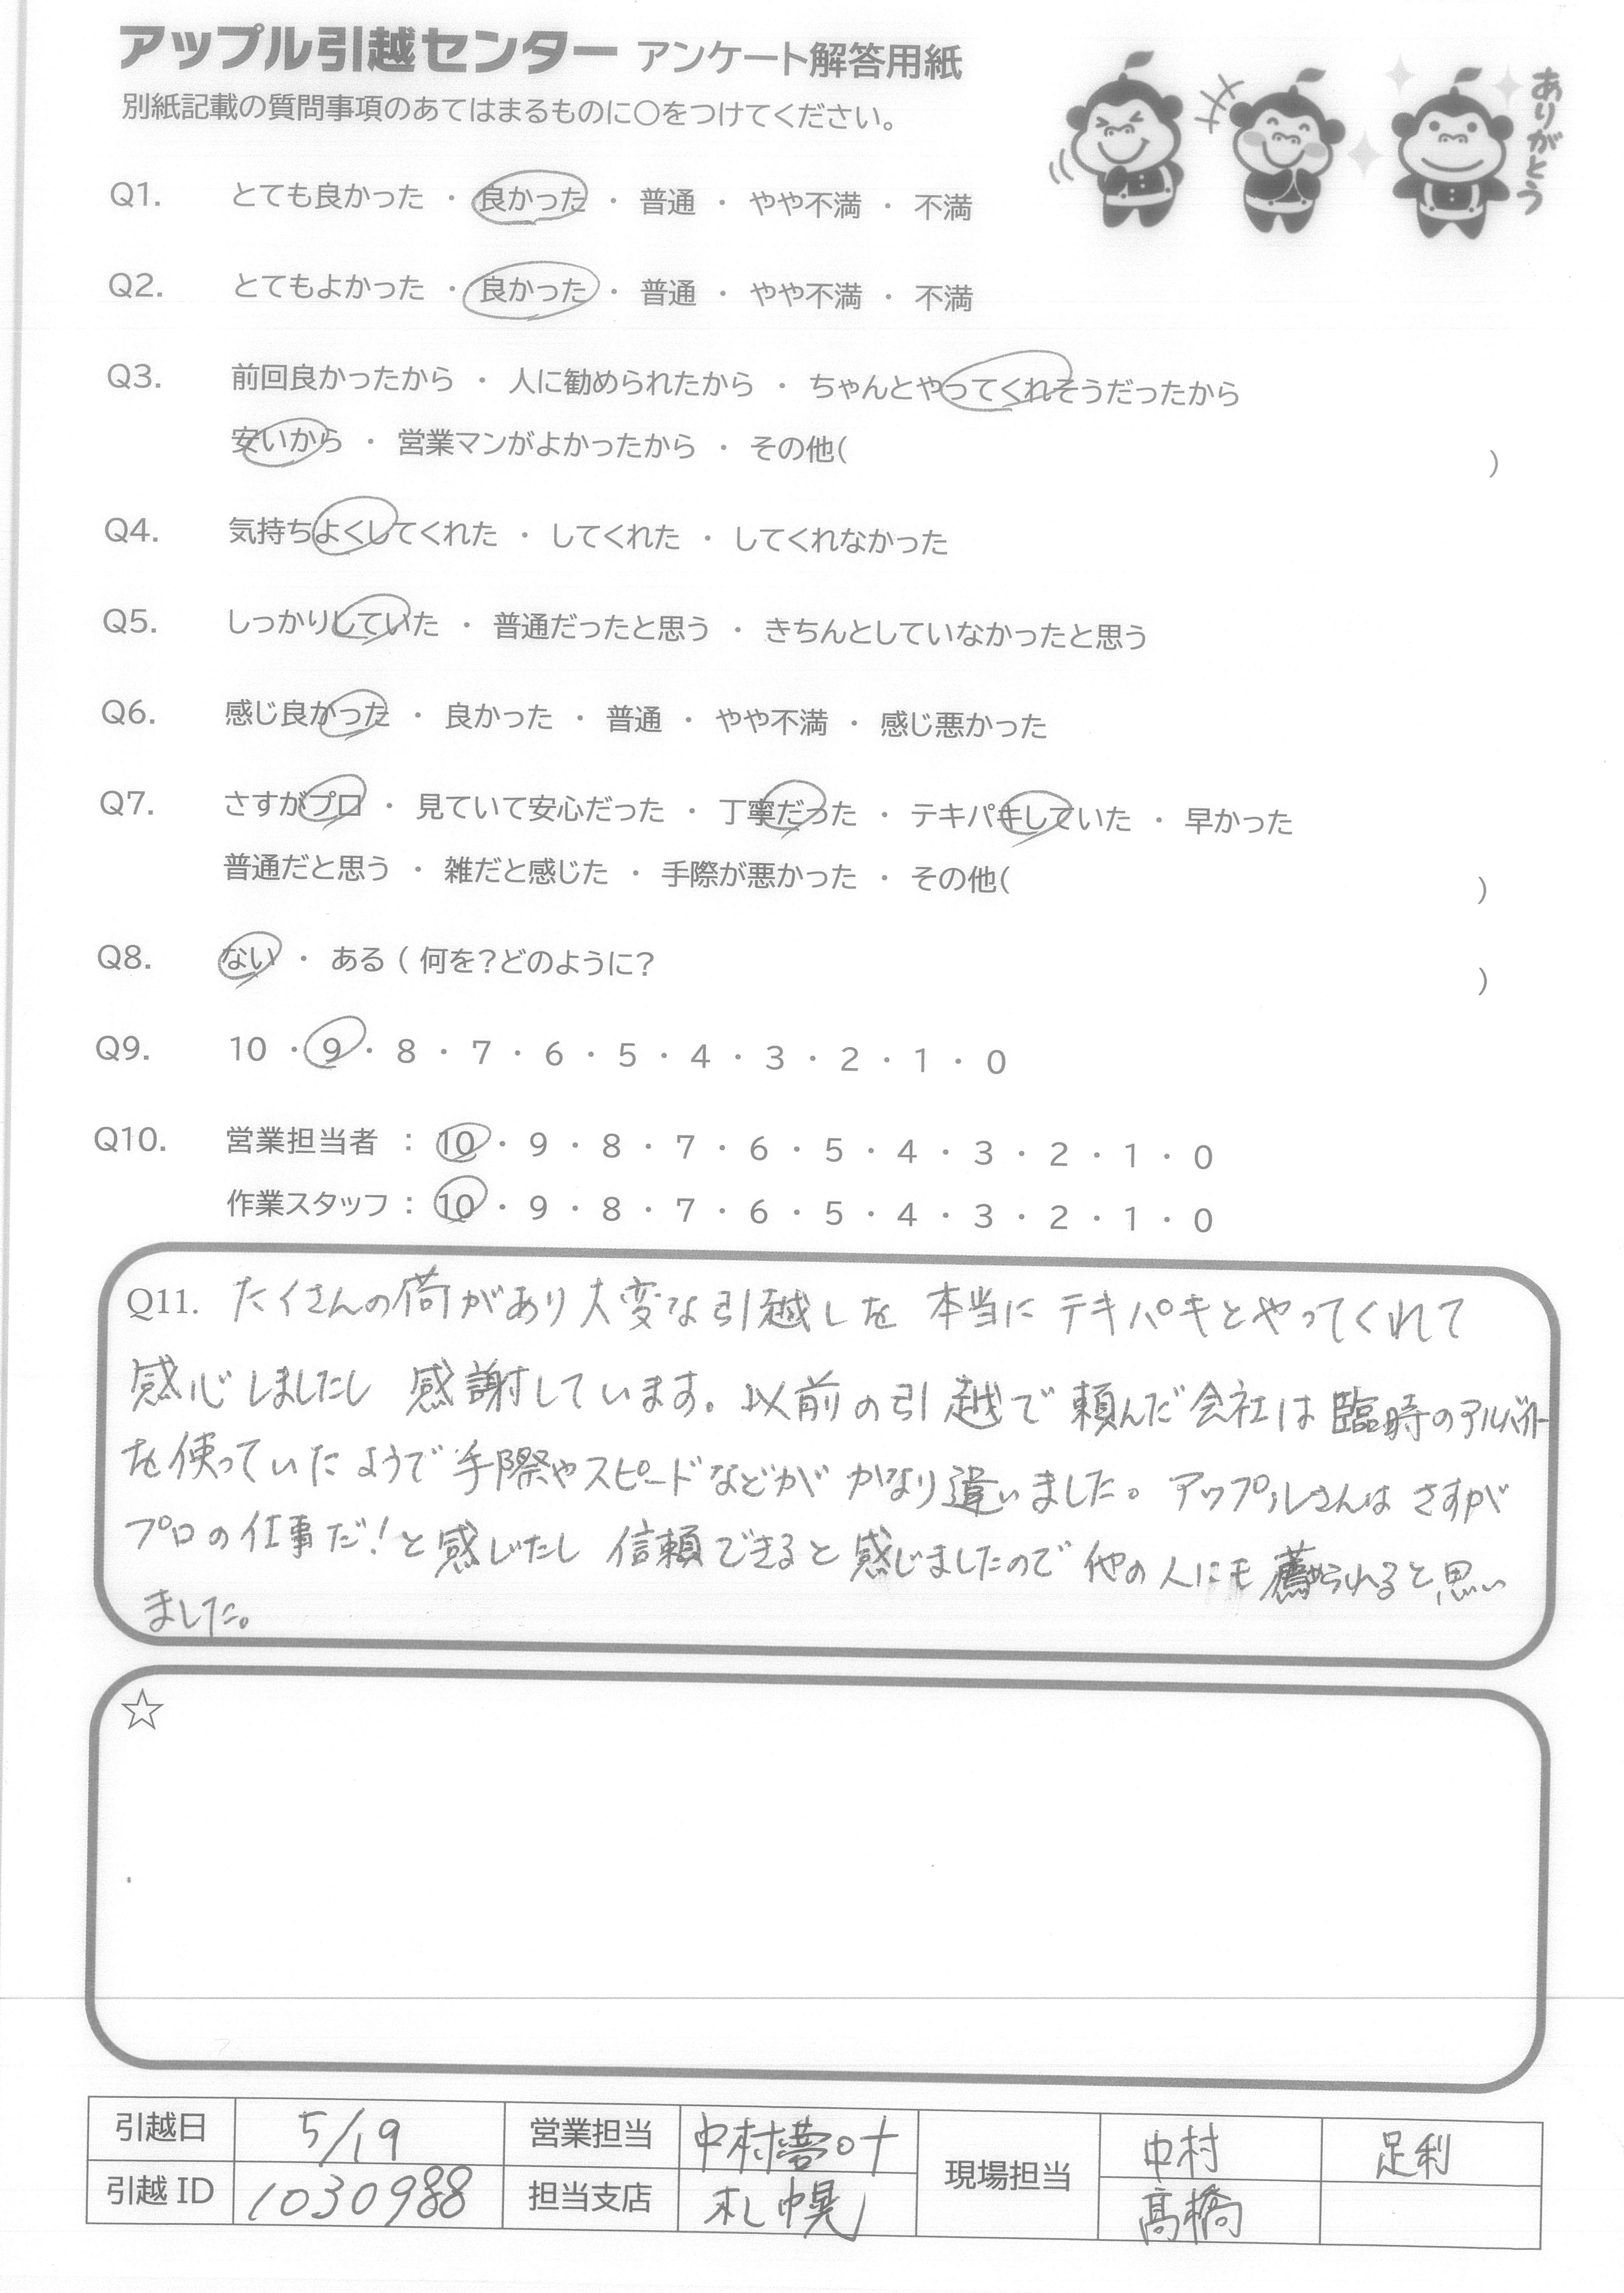 アップル引越センター アンケート解答用紙
別紙記載の質問事項のあてはまるものに○をつけてください。
ありがとう
Q1. とても良かった ・ 良かった ・ 普通 ・ やや不満 ・ 不満
Q2. とてもよかった ・ 良かった ・ 普通 ・ やや不満 ・ 不満
Q3. 前回良かったから ・ 人に勧められたから ・ ちゃんとやってくれそうだったから
安いから ・ 営業マンがよかったから ・ その他( )
Q4. 気持ちよくしてくれた ・ してくれた ・ してくれなかった
Q5. しっかりしていた ・ 普通だったと思う ・ きちんとしていなかったと思う
Q6. 感じ良かった ・ 良かった ・ 普通 ・ やや不満 ・ 感じ悪かった
Q7. さすがプロ ・ 見ていて安心だった ・ 丁寧だった ・ テキパキしていた ・ 早かった
普通だと思う ・ 雑だと感じた ・ 手際が悪かった ・ その他( )
Q8. ない ・ ある ( 何を?どのように? )
Q9. 10 ・ 9 ・ 8 ・ 7 ・ 6 ・ 5 ・ 4 ・ 3 ・ 2 ・ 1 ・ 0
Q10. 営業担当者 : 10 ・ 9 ・ 8 ・ 7 ・ 6 ・ 5 ・ 4 ・ 3 ・ 2 ・ 1 ・ 0
作業スタッフ : 10 ・ 9 ・ 8 ・ 7 ・ 6 ・ 5 ・ 4 ・ 3 ・ 2 ・ 1 ・ 0
Q11. たくさんの荷があり大変な引越しを 本当に テキパキとやってくれて
感心しましたし 感謝しています。以前の引越で頼んだ会社は臨時のアルバイト
を使っていたようで手際やスピードなどが かなり違いました。アップルさんは さすが
プロの仕事だ!と感じたし 信頼できると感じましたので 他の人にも薦められると思い
ました。
☆
引越日 5/19 営業担当 現場担当 中村 足利
引越ID 1030988 担当支店 札幌 高橋